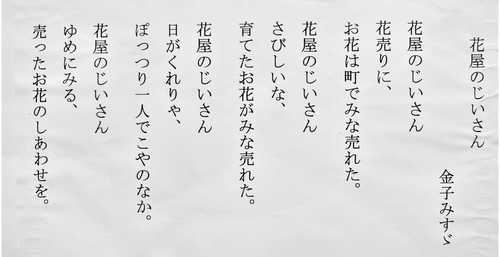 花屋のじいさん
金子みすゞ
花屋のじいさん
花売りに、
お花は町でみな売れた。
花屋のじいさん
さびしいな、
育てたお花がみな売れた。
花屋のじいさん
日がくれりゃ、
ぽっつり一人でこやのなか。
花屋のじいさん
ゆめにみる、
売ったお花のしあわせを。